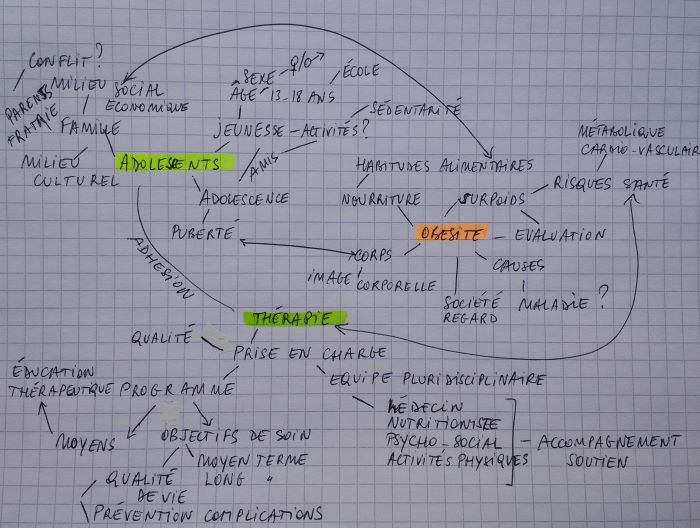 CONFLIT?
PARENTS
FRATRIE
MILIEU
SOCIAL
ECONOMIQUE
FAMILLE
MILIEU
CULTUREL
ADOLESENTS
SEXE ♀/♂
ÂGE 13-18 ANS
ÉCOLE
JEUNESSE - ACTIVITÉS?
SÉDENTARITÉ
AMIS
ADOLESCENCE
PUBERTÉ
HABITUDES ALIMENTAIRES
NOURRITURE
SURPOIDS
RISQUES SANTÉ
MÉTABOLIQUE
CARDIO-VASCULAIR
OBESITE - EVALUATION
CORPS
IMAGE CORPORELLE
CAUSES
SOCIÉTÉ
REGARD
MALADIE?
ADHESION
THÉRAPIE
QUALITÉ
PRISE EN CHARGE
ÉDUCATION
THÉRAPEUTIQUE
PROGRAMME
EQUIPE PLURIDISCIPLINAIRE
MÉDECIN
NUTRITIONISTE
PSYCHO-SOCIAL
ACTIVITÉS PHYSIQUES
- ACCOMPAGNEMENT
SOUTIEN
MOYENS
OBJECTIFS DE SOIN
MOYEN TERME
LONG "
QUALITÉ
DE VIE
PRÉVENTION COMPLICATIONS